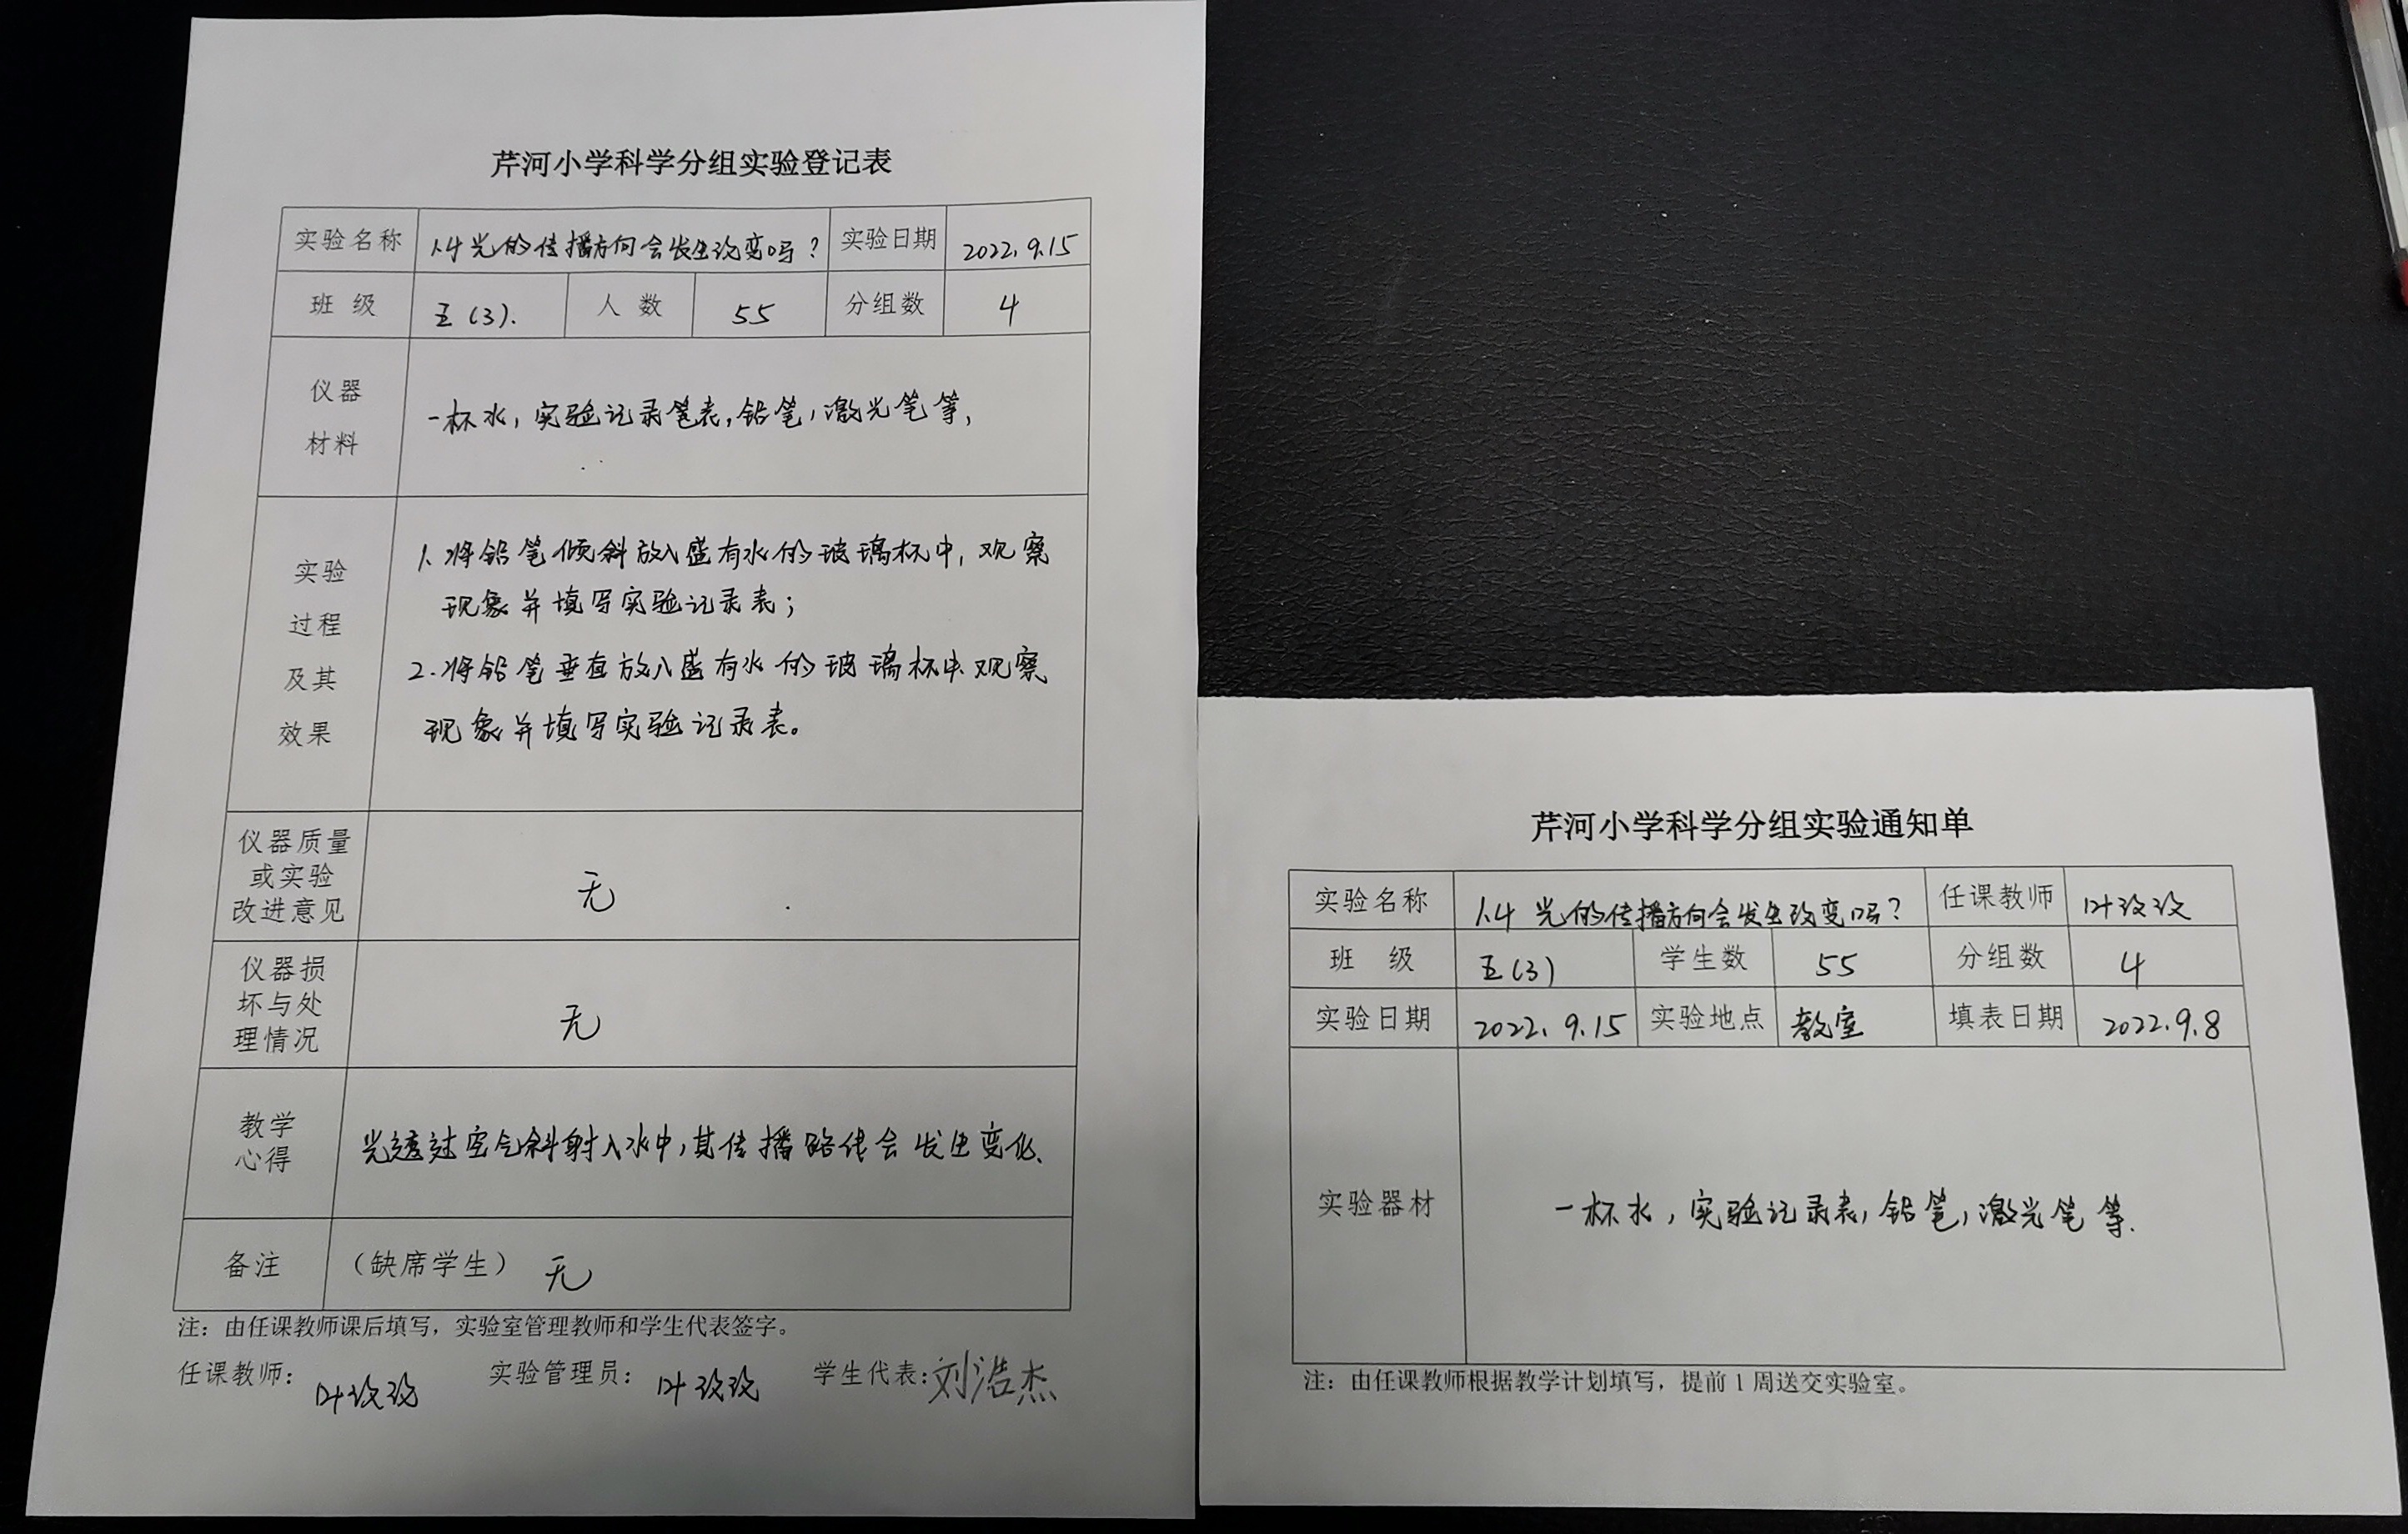 芹河小学科学分组实验登记表
实验名称 1.4 光的传播方向会发生改变吗？ 实验日期 2022.9.15
班 级 五(3). 人 数 55 分组数 4
仪器
材料
一杯水，实验记录表，铅笔，激光笔等，
实验
过程
及其
效果
1. 将铅笔倾斜放入盛有水的玻璃杯中，观察
现象并填写实验记录表；
2. 将铅笔垂直放入盛有水的玻璃杯中.观察
现象并填写实验记录表。
仪器质量
或实验
改进意见
无
仪器损
坏与处
理情况
无
教学
心得
光透过空气斜射入水中，其传播路线会发生变化、
备注 （缺席学生） 无
注：由任课教师课后填写，实验室管理教师和学生代表签字。
任课教师： 叶玫玫 实验管理员： 叶玫玫 学生代表：刘浩杰
芹河小学科学分组实验通知单
实验名称 1.4 光的传播方向会发生改变吗？ 任课教师 叶玫玫
班 级 五(3) 学生数 55 分组数 4
实验日期 2022.9.15 实验地点 教室 填表日期 2022.9.8
实验器材 一杯水，实验记录表，铅笔，激光笔等.
注：由任课教师根据教学计划填写，提前 1 周送交实验室。